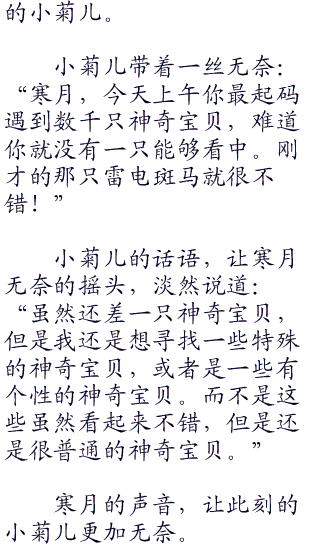 的小菊儿。
小菊儿带着一丝无奈：
“寒月，今天上午你最起码
遇到数千只神奇宝贝，难道
你就没有一只能够看中。刚
才的那只雷电斑马就很不
错！”
小菊儿的话语，让寒月
无奈的摇头，淡然说道：
“虽然还差一只神奇宝贝，
但是我还是想寻找一些特殊
的神奇宝贝，或者是一些有
个性的神奇宝贝。而不是这
些虽然看起来不错，但是还
是很普通的神奇宝贝。”
寒月的声音，让此刻的
小菊儿更加无奈。